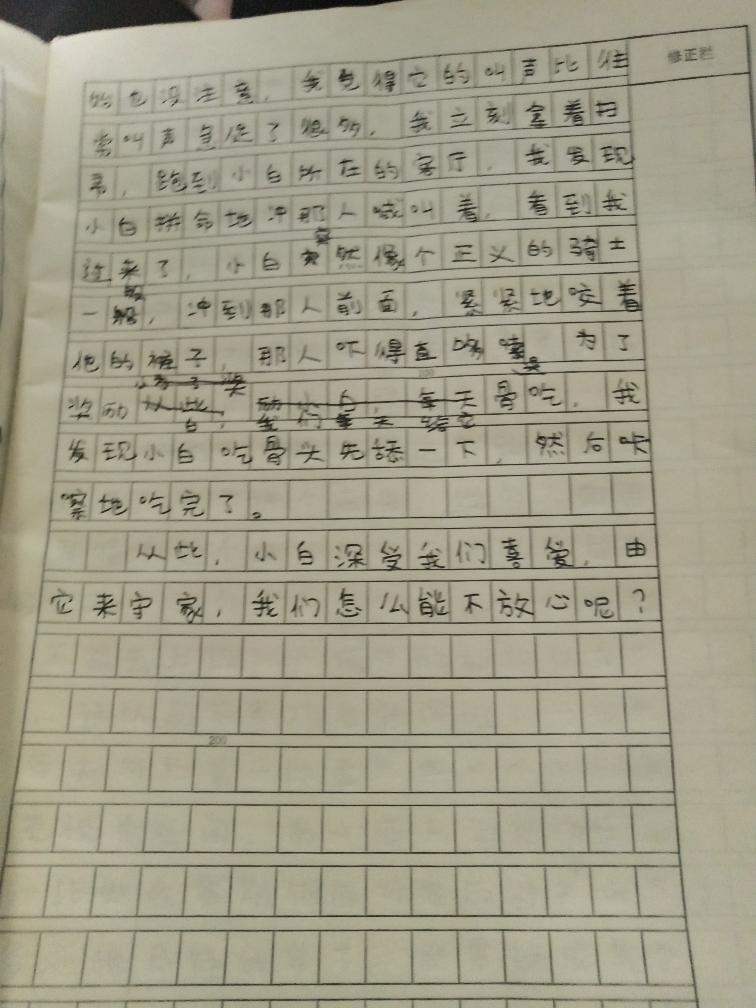 始也没注意，我觉得它的叫声比往
修正栏
常叫声急促了很多，我立刻拿着扫
帚，跑到小白所在的客厅，我发现
小白拼命地冲那人喊叫着，看到我
过来了，小白突然像个正义的骑士
一般，冲到那人前面，紧紧地咬着
他的裤子，那人吓得直哆嗦 为了
奖励 骨吃，我
白，我们每天给它
发现小白吃骨头先舔一下，然后咔
嚓地吃完了。
从此，小白深受我们喜爱，由
它来守家，我们怎么能不放心呢？
200